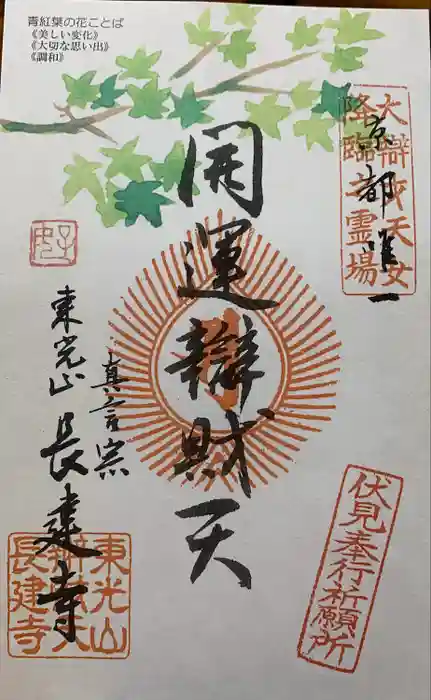 青紅葉の花ことば
《美しい変化》
《大切な思い出》
《調和》
大辯才天女
降臨之霊場
京都唯一
開運辯財天
真言宗
東光山
長建寺
伏見奉行祈願所
東光山
辯財天
長建寺